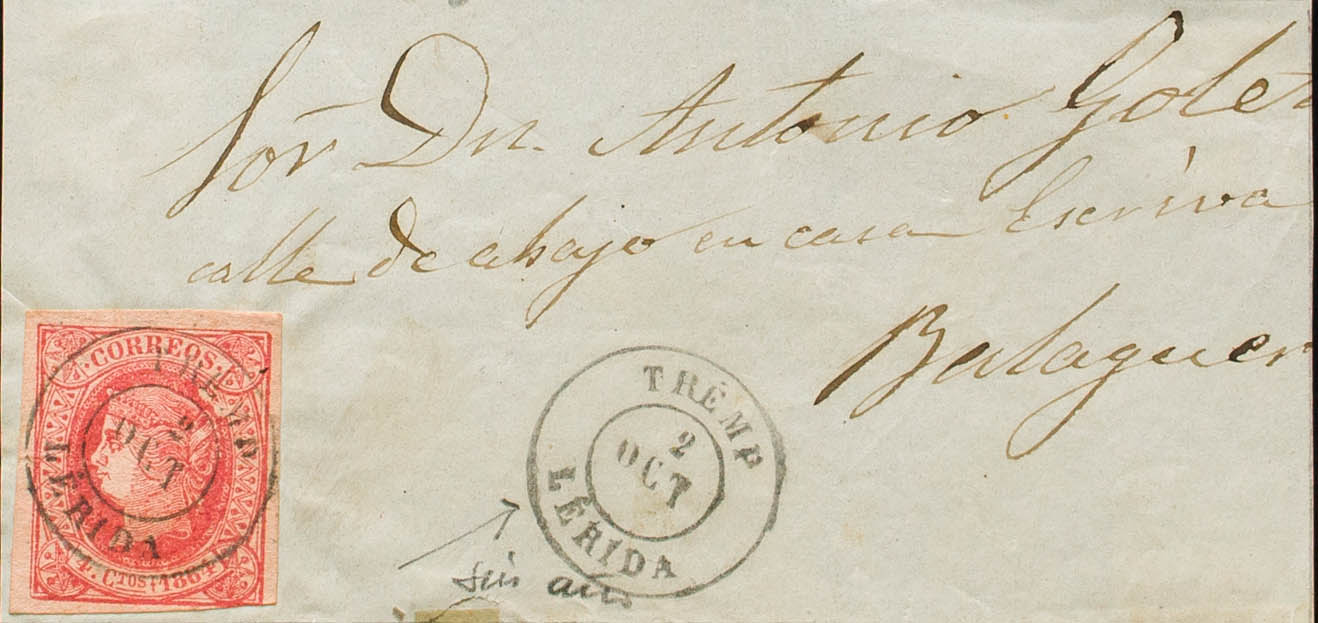 Sor Dn. Antonio Golet
calle de abajo en casa Escriva
Balaguer
CORREOS
TREMP
2
OCT
LÉRIDA
4. CTOS 1864
TRÉMP
2
OCT
LÉRIDA
sin